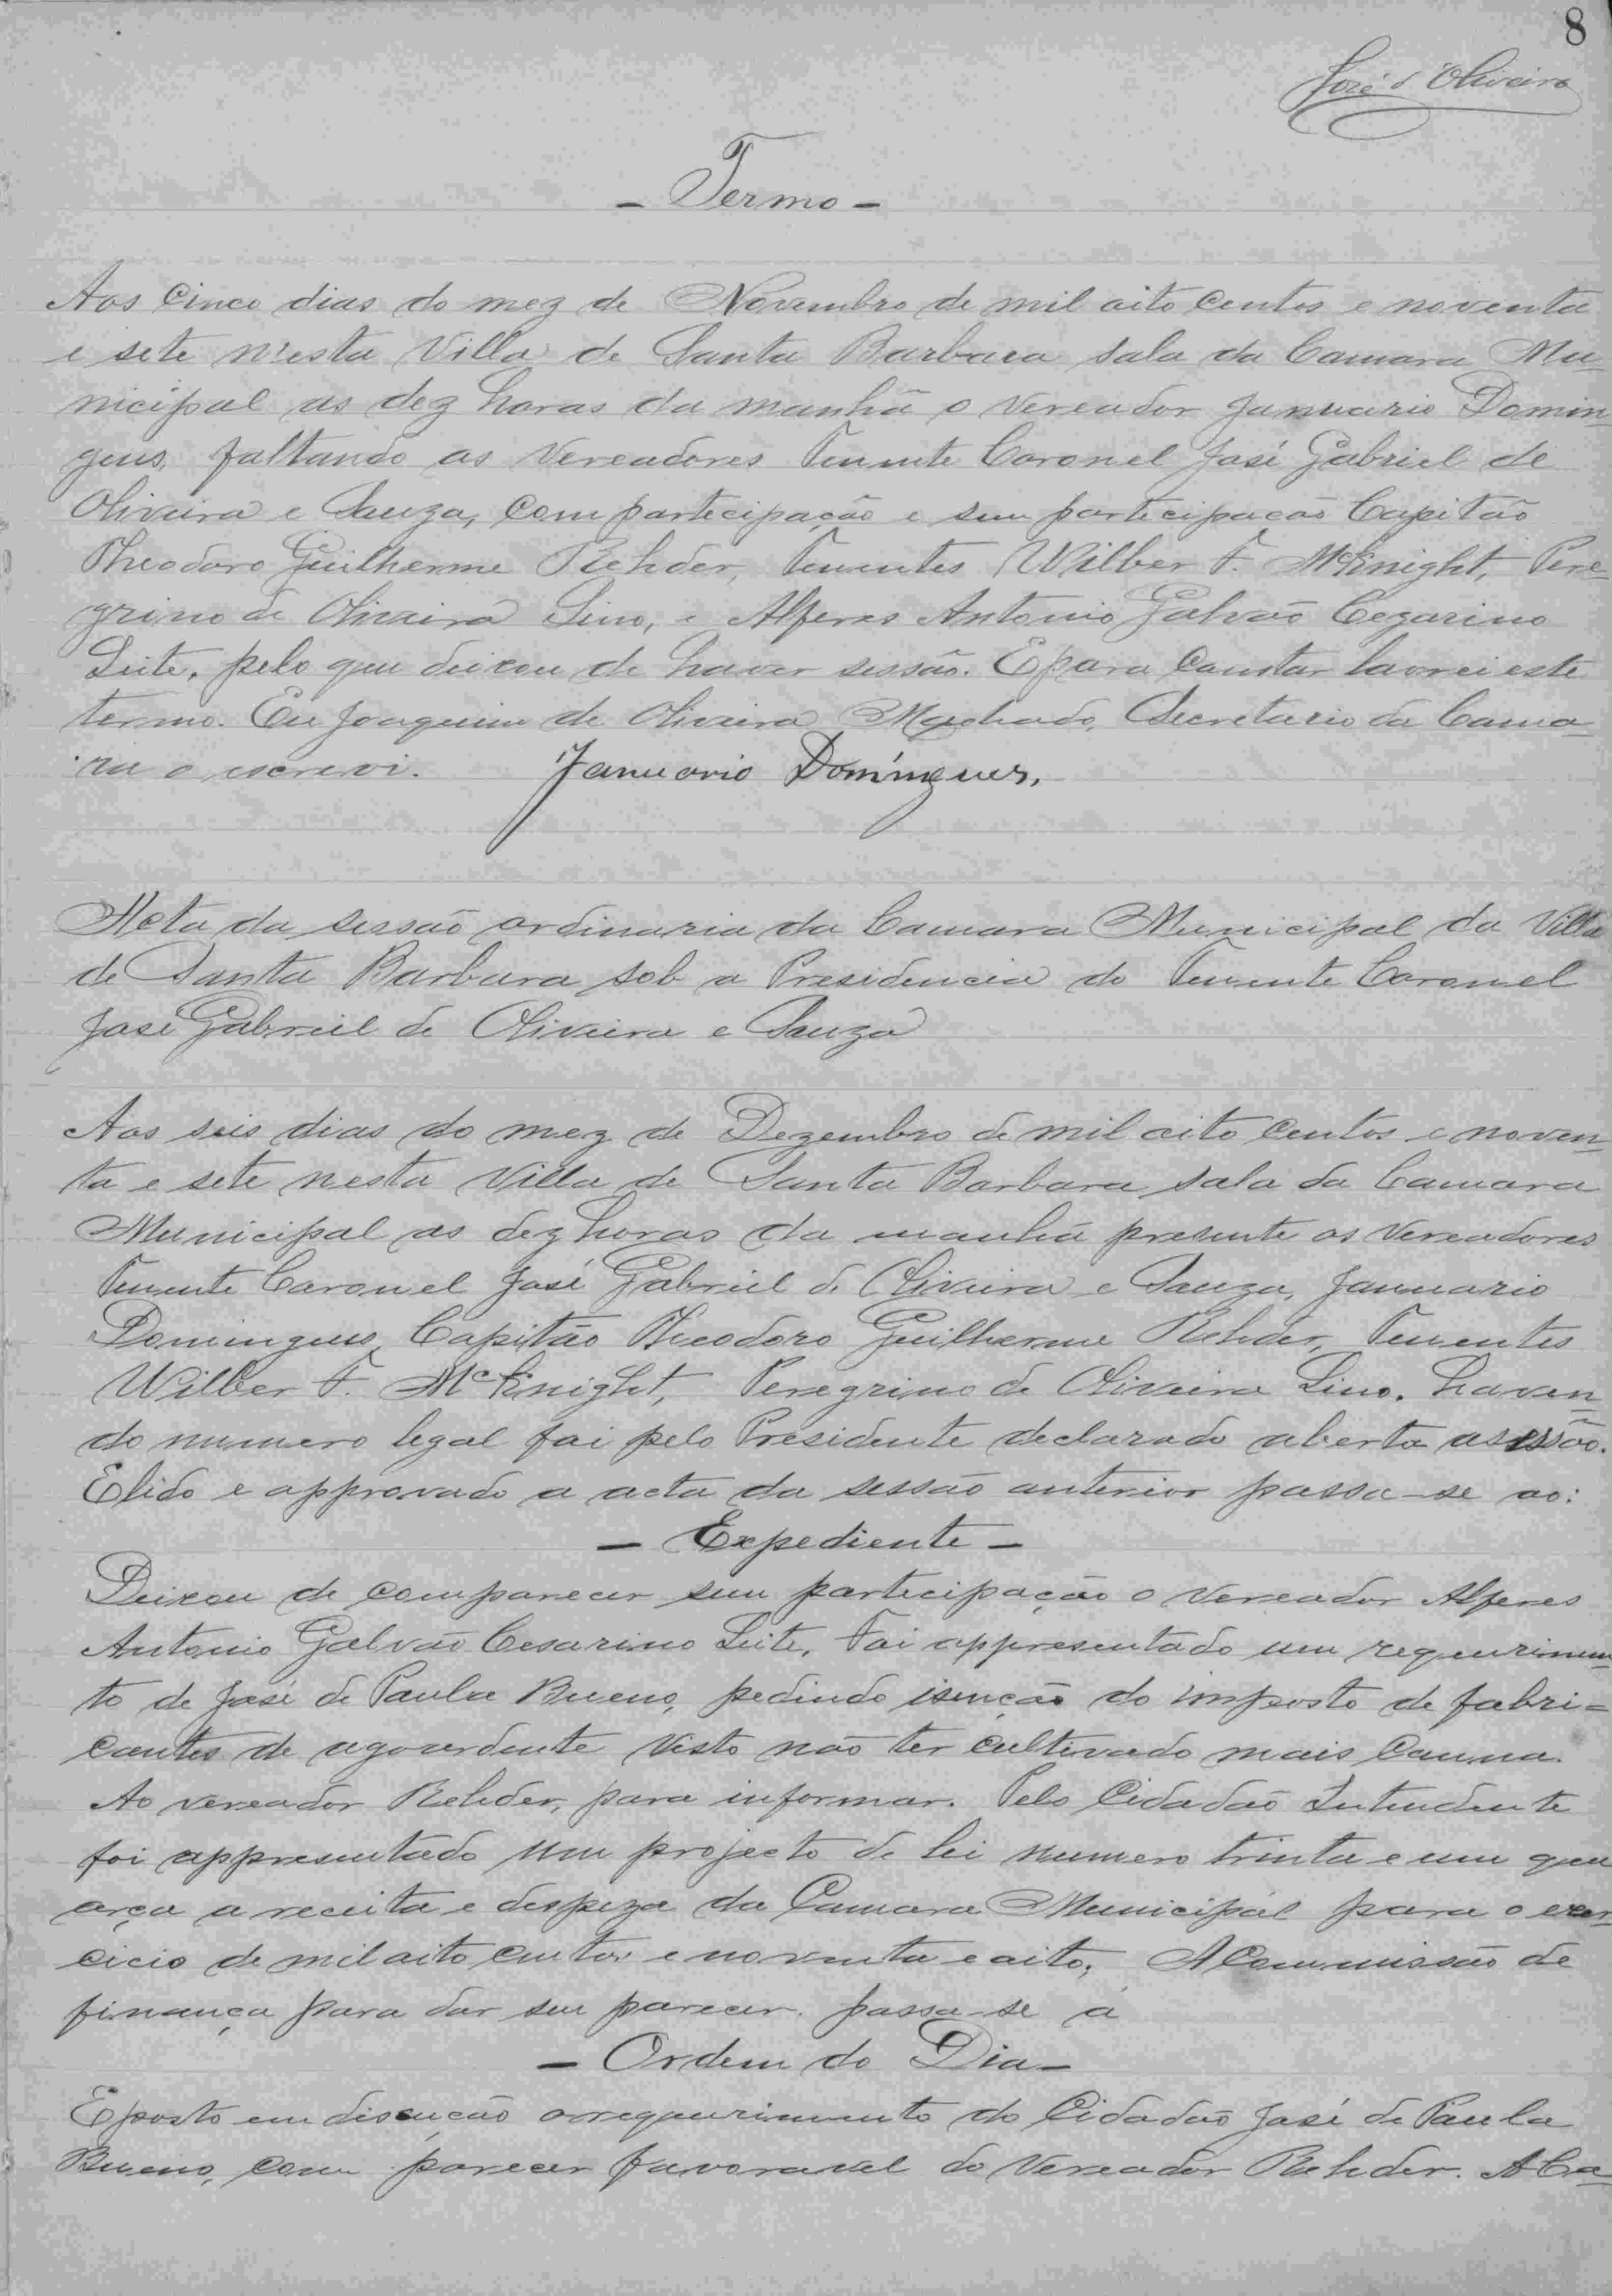 8
José d'Oliveira
- Termo -
Aos Cinco dias do mez de Novembro de mil oito Centos e noventa
e sete nesta Villa de Santa Barbara sala da Camara Mu-
nicipal as dez horas da manhã o Vereador Januario Domin-
gues, faltando os Vereadores Tenente Coronel José Gabriel de
Oliveira e Souza, Com participação e sem participação Capitão
Theodoro Guilherme Rehder, Tenentes Wilber F. McKnight, Pere-
grino de Oliveira Lino, e Alferes Antonio Galvão Cezarino
Leite, pelo que deixou de haver sessão. E para Constar lavrei este
termo. Eu Joaquim de Oliveira Machado, Secretario da Cama-
ra o escrevi. Januario Domingues.
Acta da sessão ordinaria da Camara Municipal da Villa
de Santa Barbara sob a Presidencia do Tenente Coronel
José Gabriel de Oliveira e Souza
Aos seis dias do mez de Dezembro de mil oito Centos e noven-
ta e sete nesta Villa de Santa Barbara sala da Camara
Municipal as dez horas da manhã presente os Vereadores
Tenente Coronel José Gabriel de Oliveira e Souza, Januario
Domingues, Capitão Theodoro Guilherme Rehder, Tenentes
Wilber F. McKnight, Peregrino de Oliveira Lino. haven-
do numero legal foi pelo Presidente declarado aberta a sessão.
E lido e approvado a acta da sessão anterior passa-se ao:
- Expediente -
Deixou de comparecer sem participação o Vereador Alferes
Antonio Galvão Cesarino Leite. Foi appresentado um requerimen-
to de José de Paula Bueno, pedindo isenção do imposto de fabri-
cantes de agoardente visto não ter cultivado mais Canna.
Ao vereador Rehder, para informar. Pelo Cidadão Intendente
foi appresentado um projecto de lei numero trinta e um que
orça a receita e despeza da Camara Municipal para o exer-
cicio de mil oito centos e noventa e oito, A Commissão de
finança para dar seu parecer. passa-se á
- Ordem do Dia -
E posto em discução o requerimento do Cidadão José de Paula
Bueno, com parecer favoravel do Vereador Rehder. A Ca-